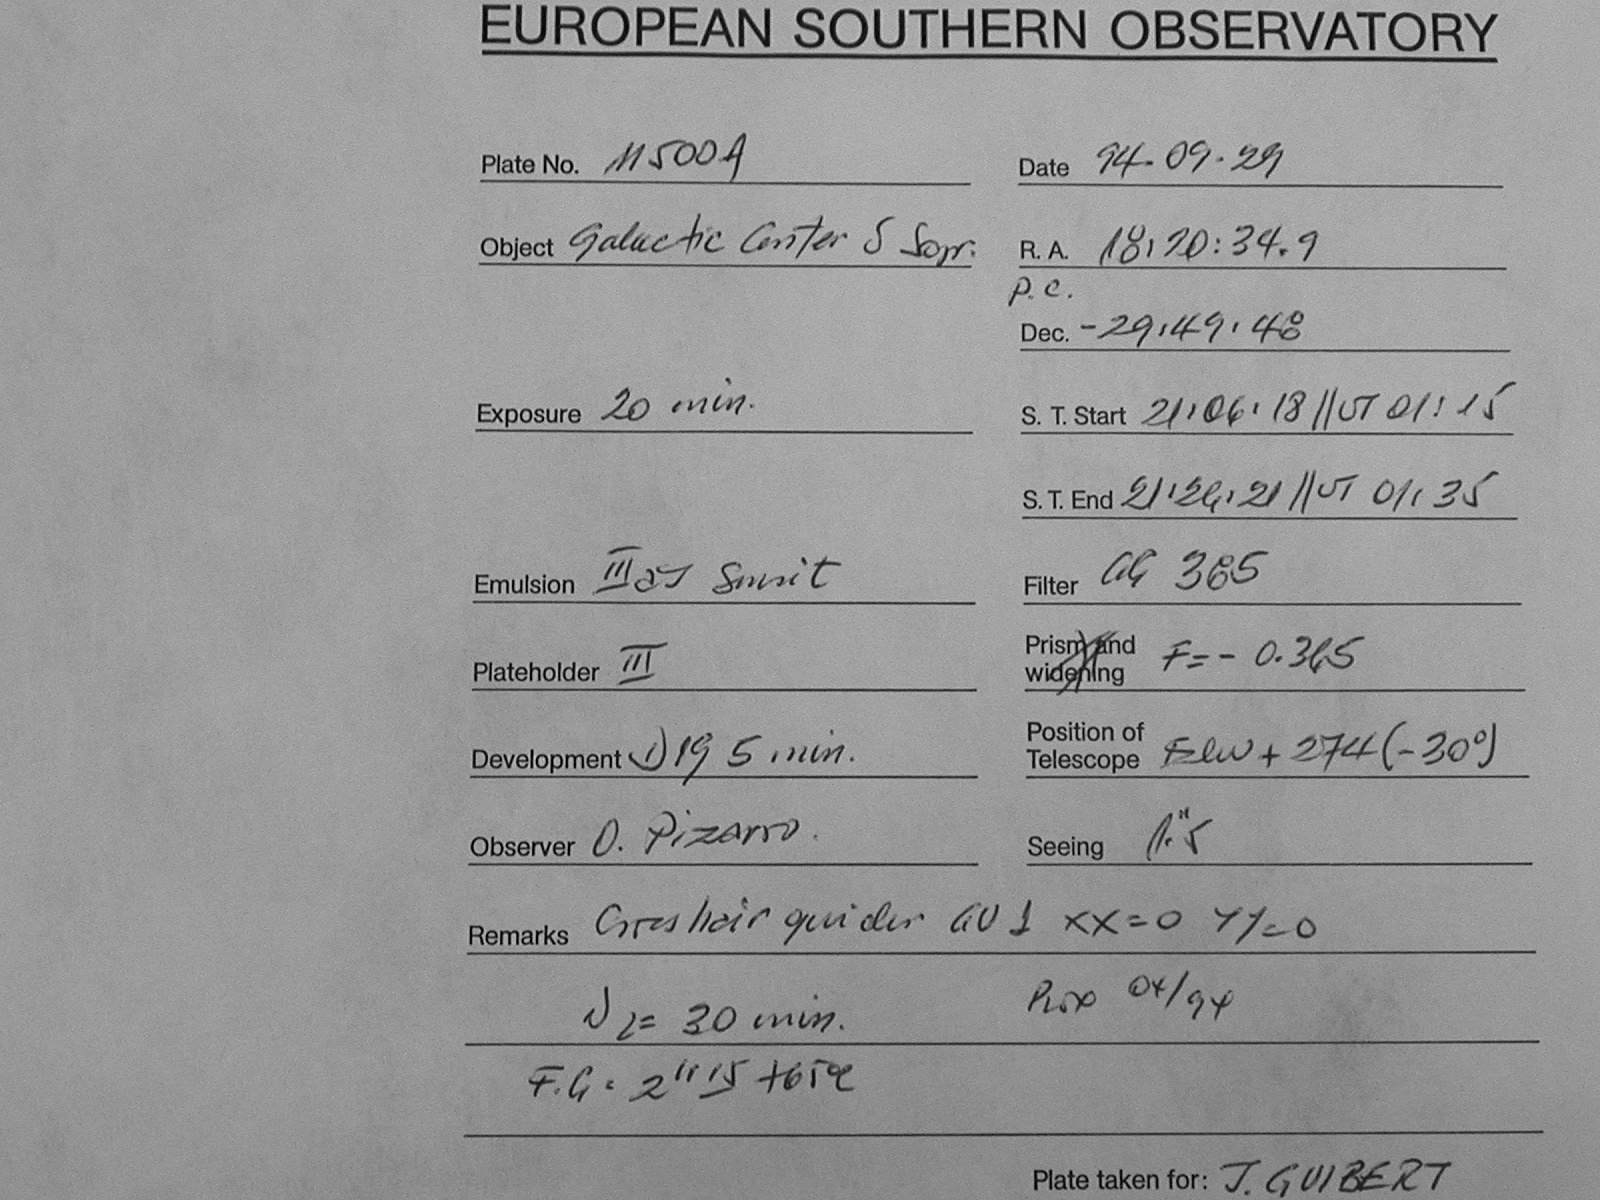 EUROPEAN SOUTHERN OBSERVATORY
Plate No. 11500A Date 94-09-29
Object Galactic Center S R. A. 18:20:34.9
P.C.
Dec. -29:49:48
Exposure 20 min. S. T. Start 21:06:18 // UT 01:15
S. T. End 21:26:21 // UT 01:35
Emulsion III aJ Filter GG 385
Plateholder III Prism and widening F=- 0.365
Development 19 5 min. Position of Telescope + 274 (-30°)
Observer O. Pizarro. Seeing 1."5
Remarks guider XX=0 YY=0
N2= 30 min. 04/94
F.G:
Plate taken for: J. GUIBERT